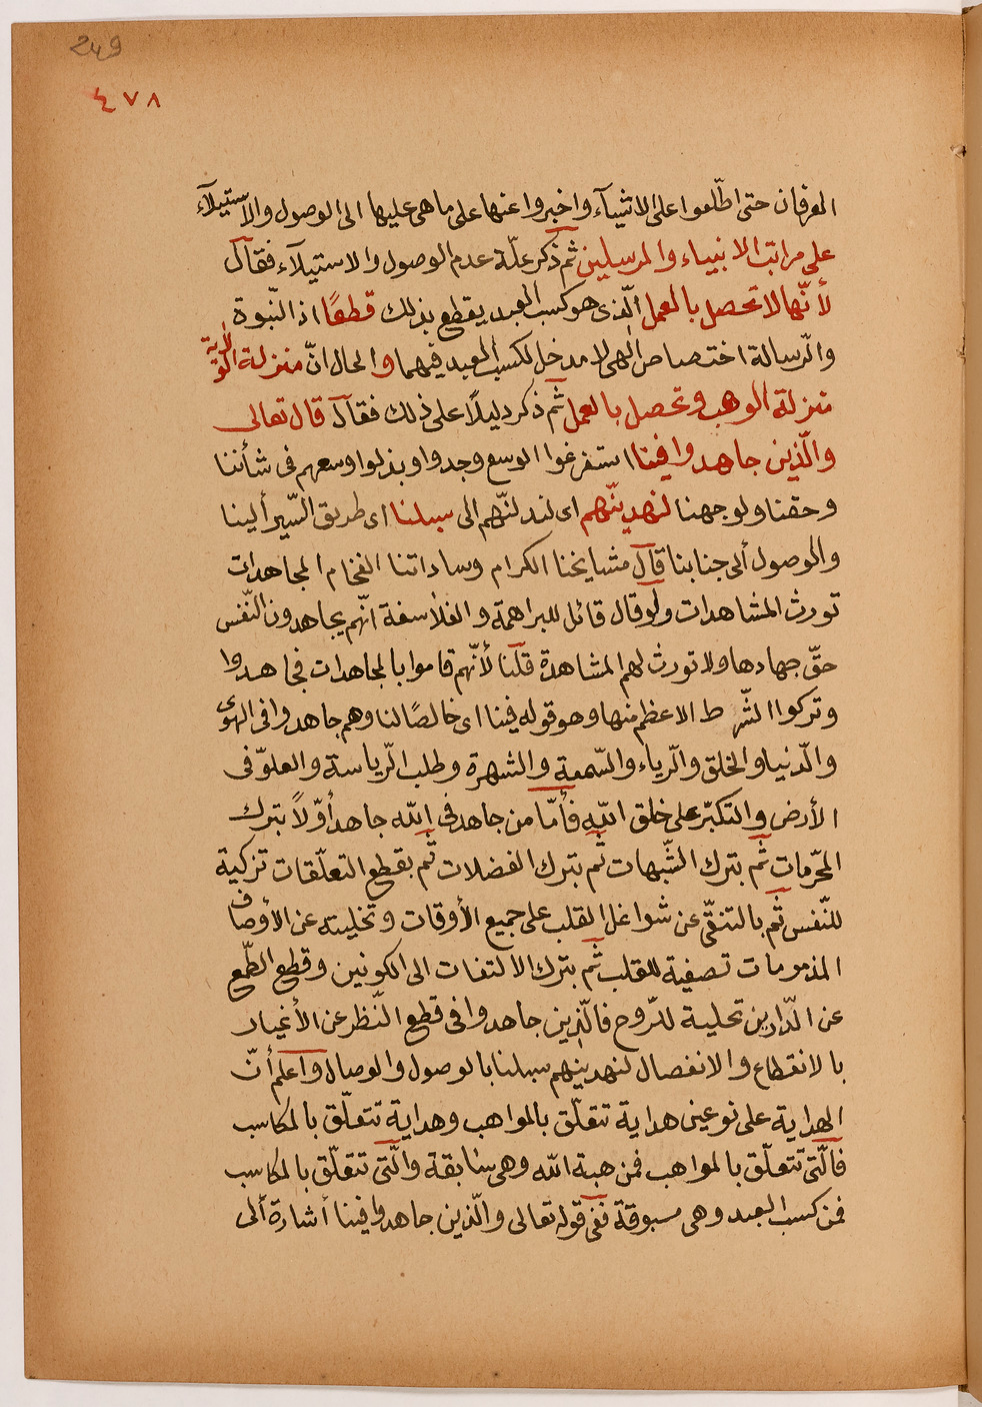 249
٤٧٨
العرفان حتى اطّلعوا على الاشيآء واخبروا عنها على ما هى عليها الى الوصول والاستيلآء
على مراتب الانبياء والمرسلين ثم ذكر علّة عدم الوصول والاستيلآء فقال
لأنّها لا تحصل بالعمل الّذى هو كسب العبد يقطع بذلك قطعًا اذ النّبوة
والرّسالة اختصاص الهى لا مدخل لكسب العبد فيهما والحال انّ منزلة الولاية
منزلة الوهب وتحصل بالعمل ثم ذكر دليلاً على ذلك فقال قال تعالى
والّذين جاهدوا فينا استفرغوا الوسع وجدوا وبذلوا وسعهم فى شأننا
وحقنا ولوجهنا لنهدينّهم اى لندلنّهم الى سبلنا اى طريق السّير ألينا
والوصول ألى جنابنا قال مشايخنا الكرام وساداتنا الفخام المجاهدات
تورث المشاهدات ولو قال قائل للبراهمة والفلاسفة انّهم يجاهدون النّفس
حقّ جهادها ولا تورث لهم المشاهدة قلنا لأنّهم قاموا بالمجاهدات فجاهدوا
وتركوا الشّرط الاعظم منها وهو قوله فينا اى خالصًا لنا وهم جاهدوا فى الهوى
والّدنيا والخلق والرّياء والسّمعة والشهرة وطلب الرّياسة والعلوّ فى
الأرض والتكبّر على خلق اللّه فأمّا من جاهد فى اللّه جاهد أوّلاً بترك
المحرّمات ثم بترك الشّبهات ثم بترك الفضلات ثم بقطع التعلّقات تزكية
للنّفس ثم بالتنقّى عن شواغل القلب على جميع الأوقات وتخليته عن الأوصاف
المذمومات تصفية للقلب ثم بترك الالتفات الى الكونين وقطع الطّمع
عن الدّارين تحلية للرّوح فالّذين جاهدوا فى قطع النّظر عن الأغيار
بالانقطاع والانفصال لنهدينهم سبلنا بالوصول والوصال واعلم أنّ
الهداية على نوعين هداية تتعلّق بالمواهب وهداية تتعلّق بالمكاسب
فالّتى تتعلّق بالمواهب فمن هبة اللّه وهى سابقة والّتى تتعلّق بالمكاسب
فمن كسب العبد وهى مسبوقة ففى قوله تعالى والّذين جاهدوا فينا أشارة ألى